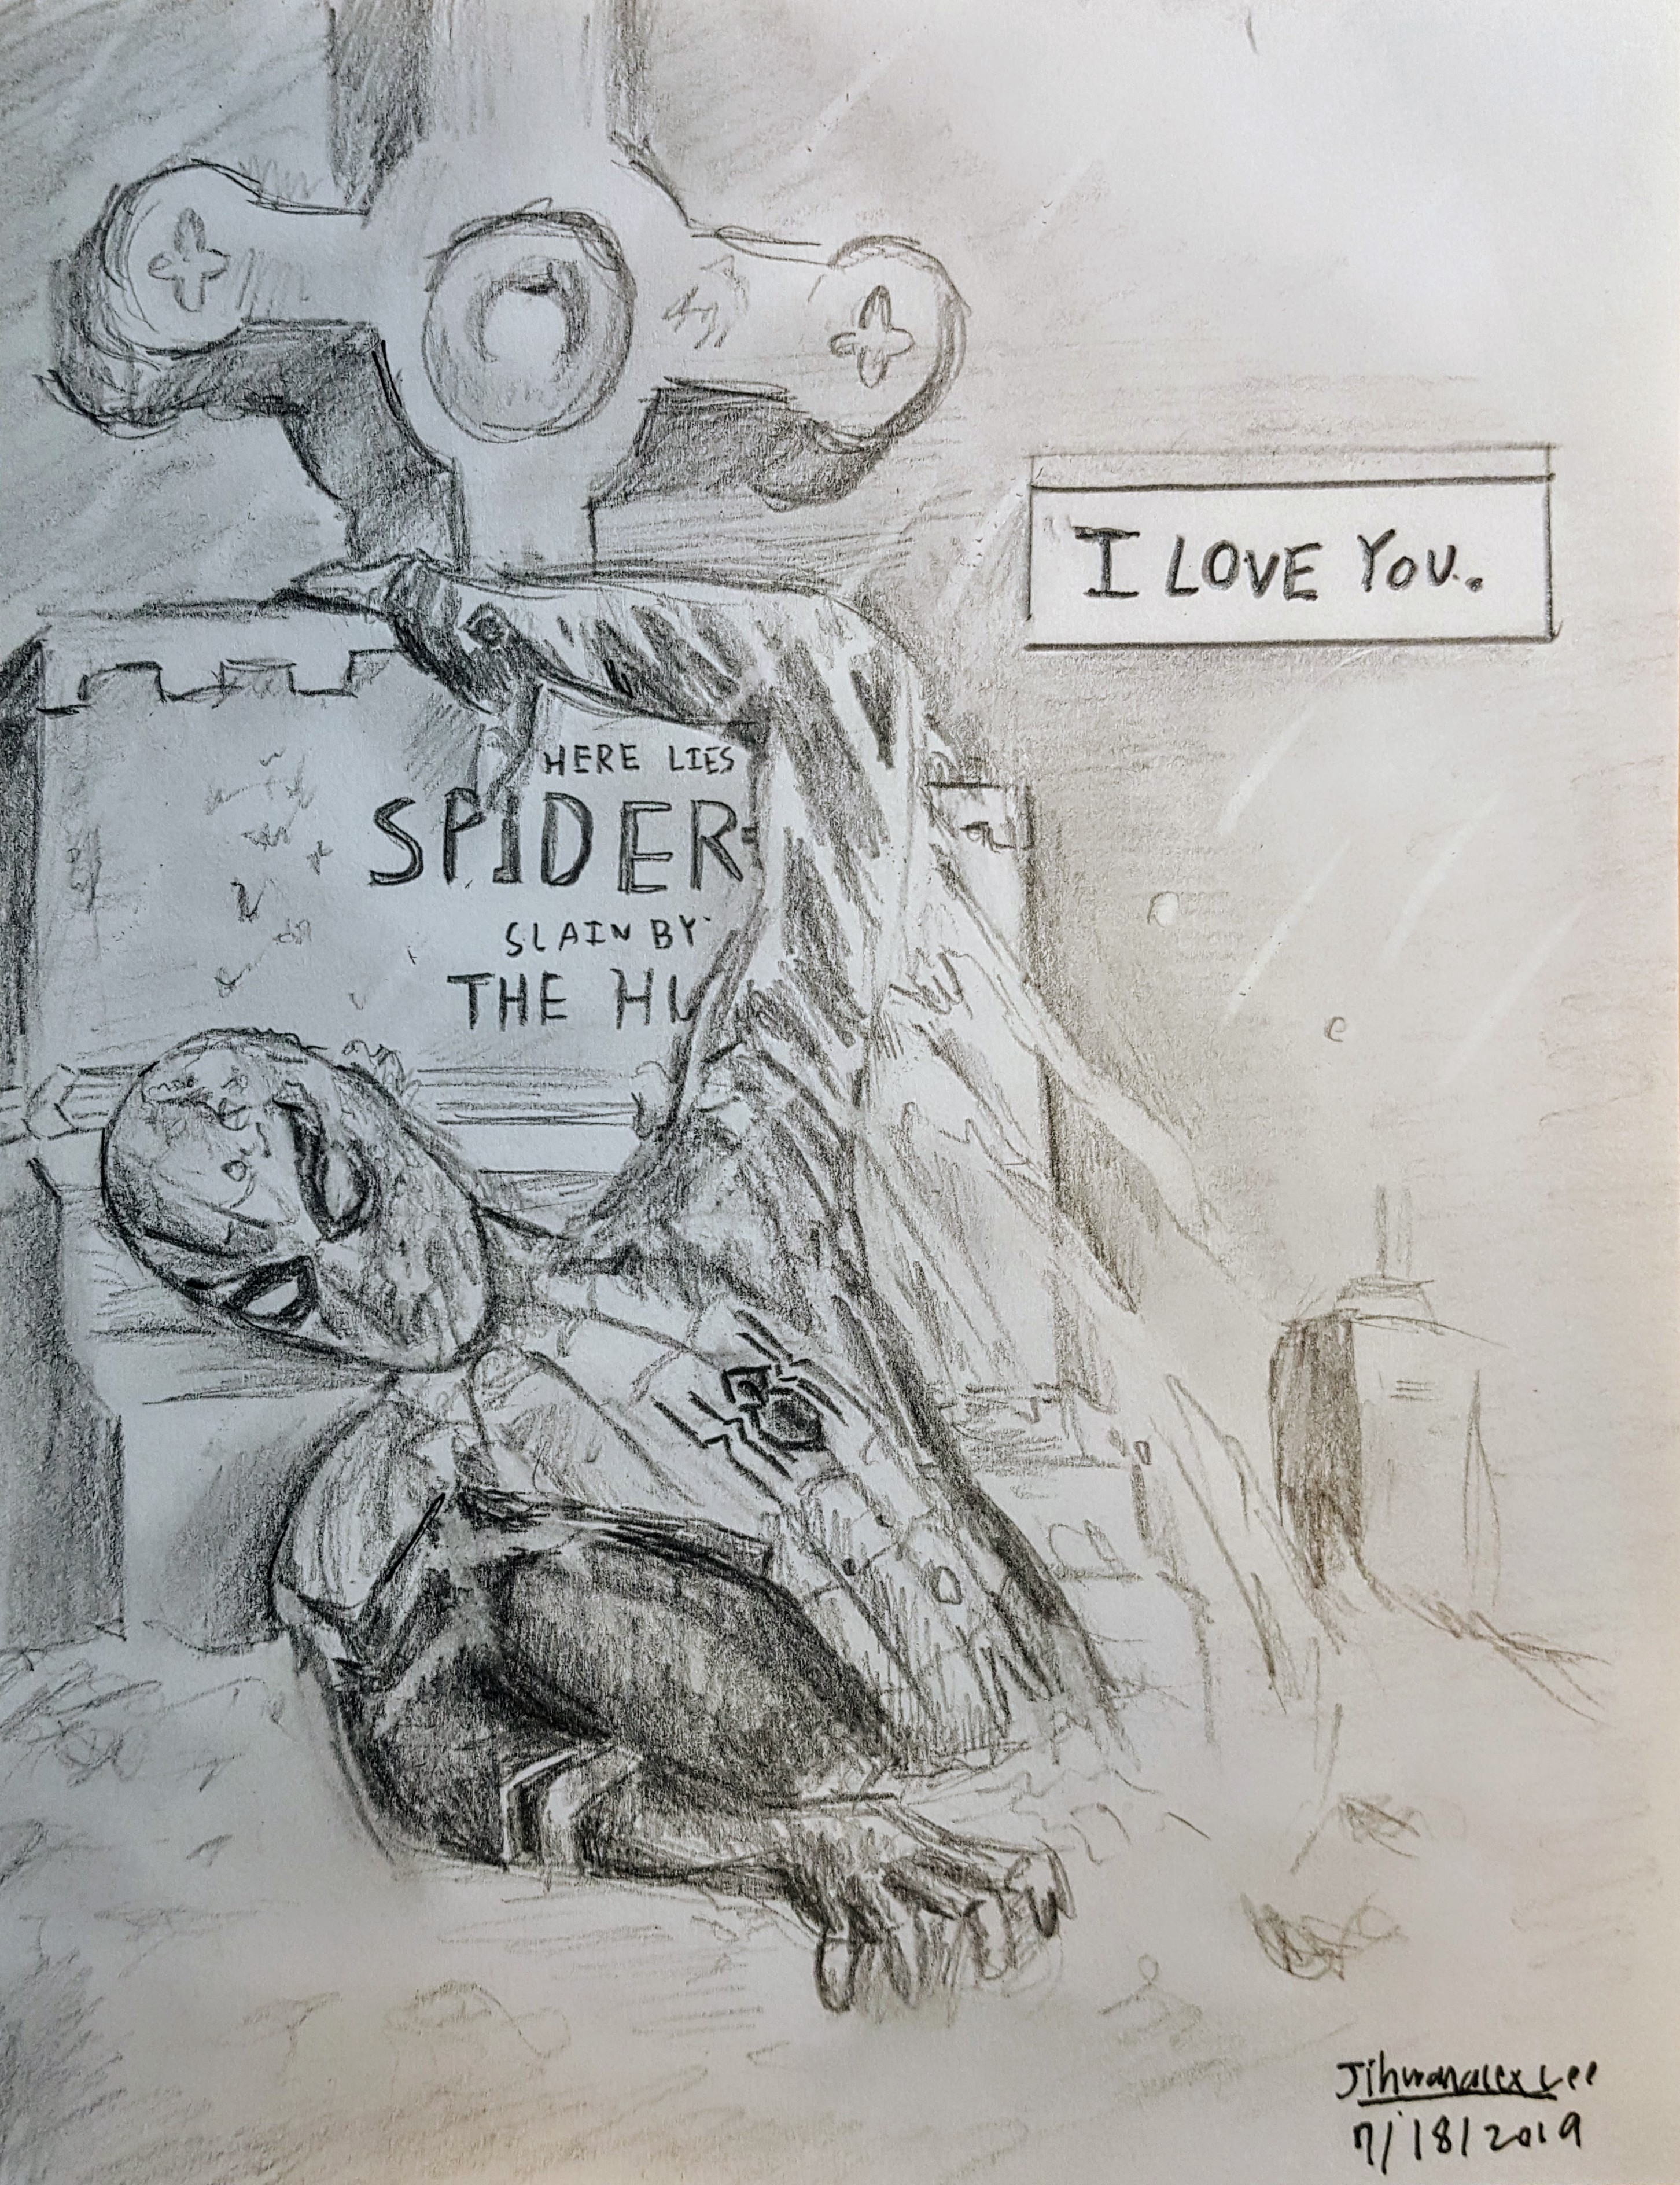 I LOVE YOU.
HERE LIES
SPIDER-
SLAIN BY
THE HU
Jihwanalex Lee
7/18/2019